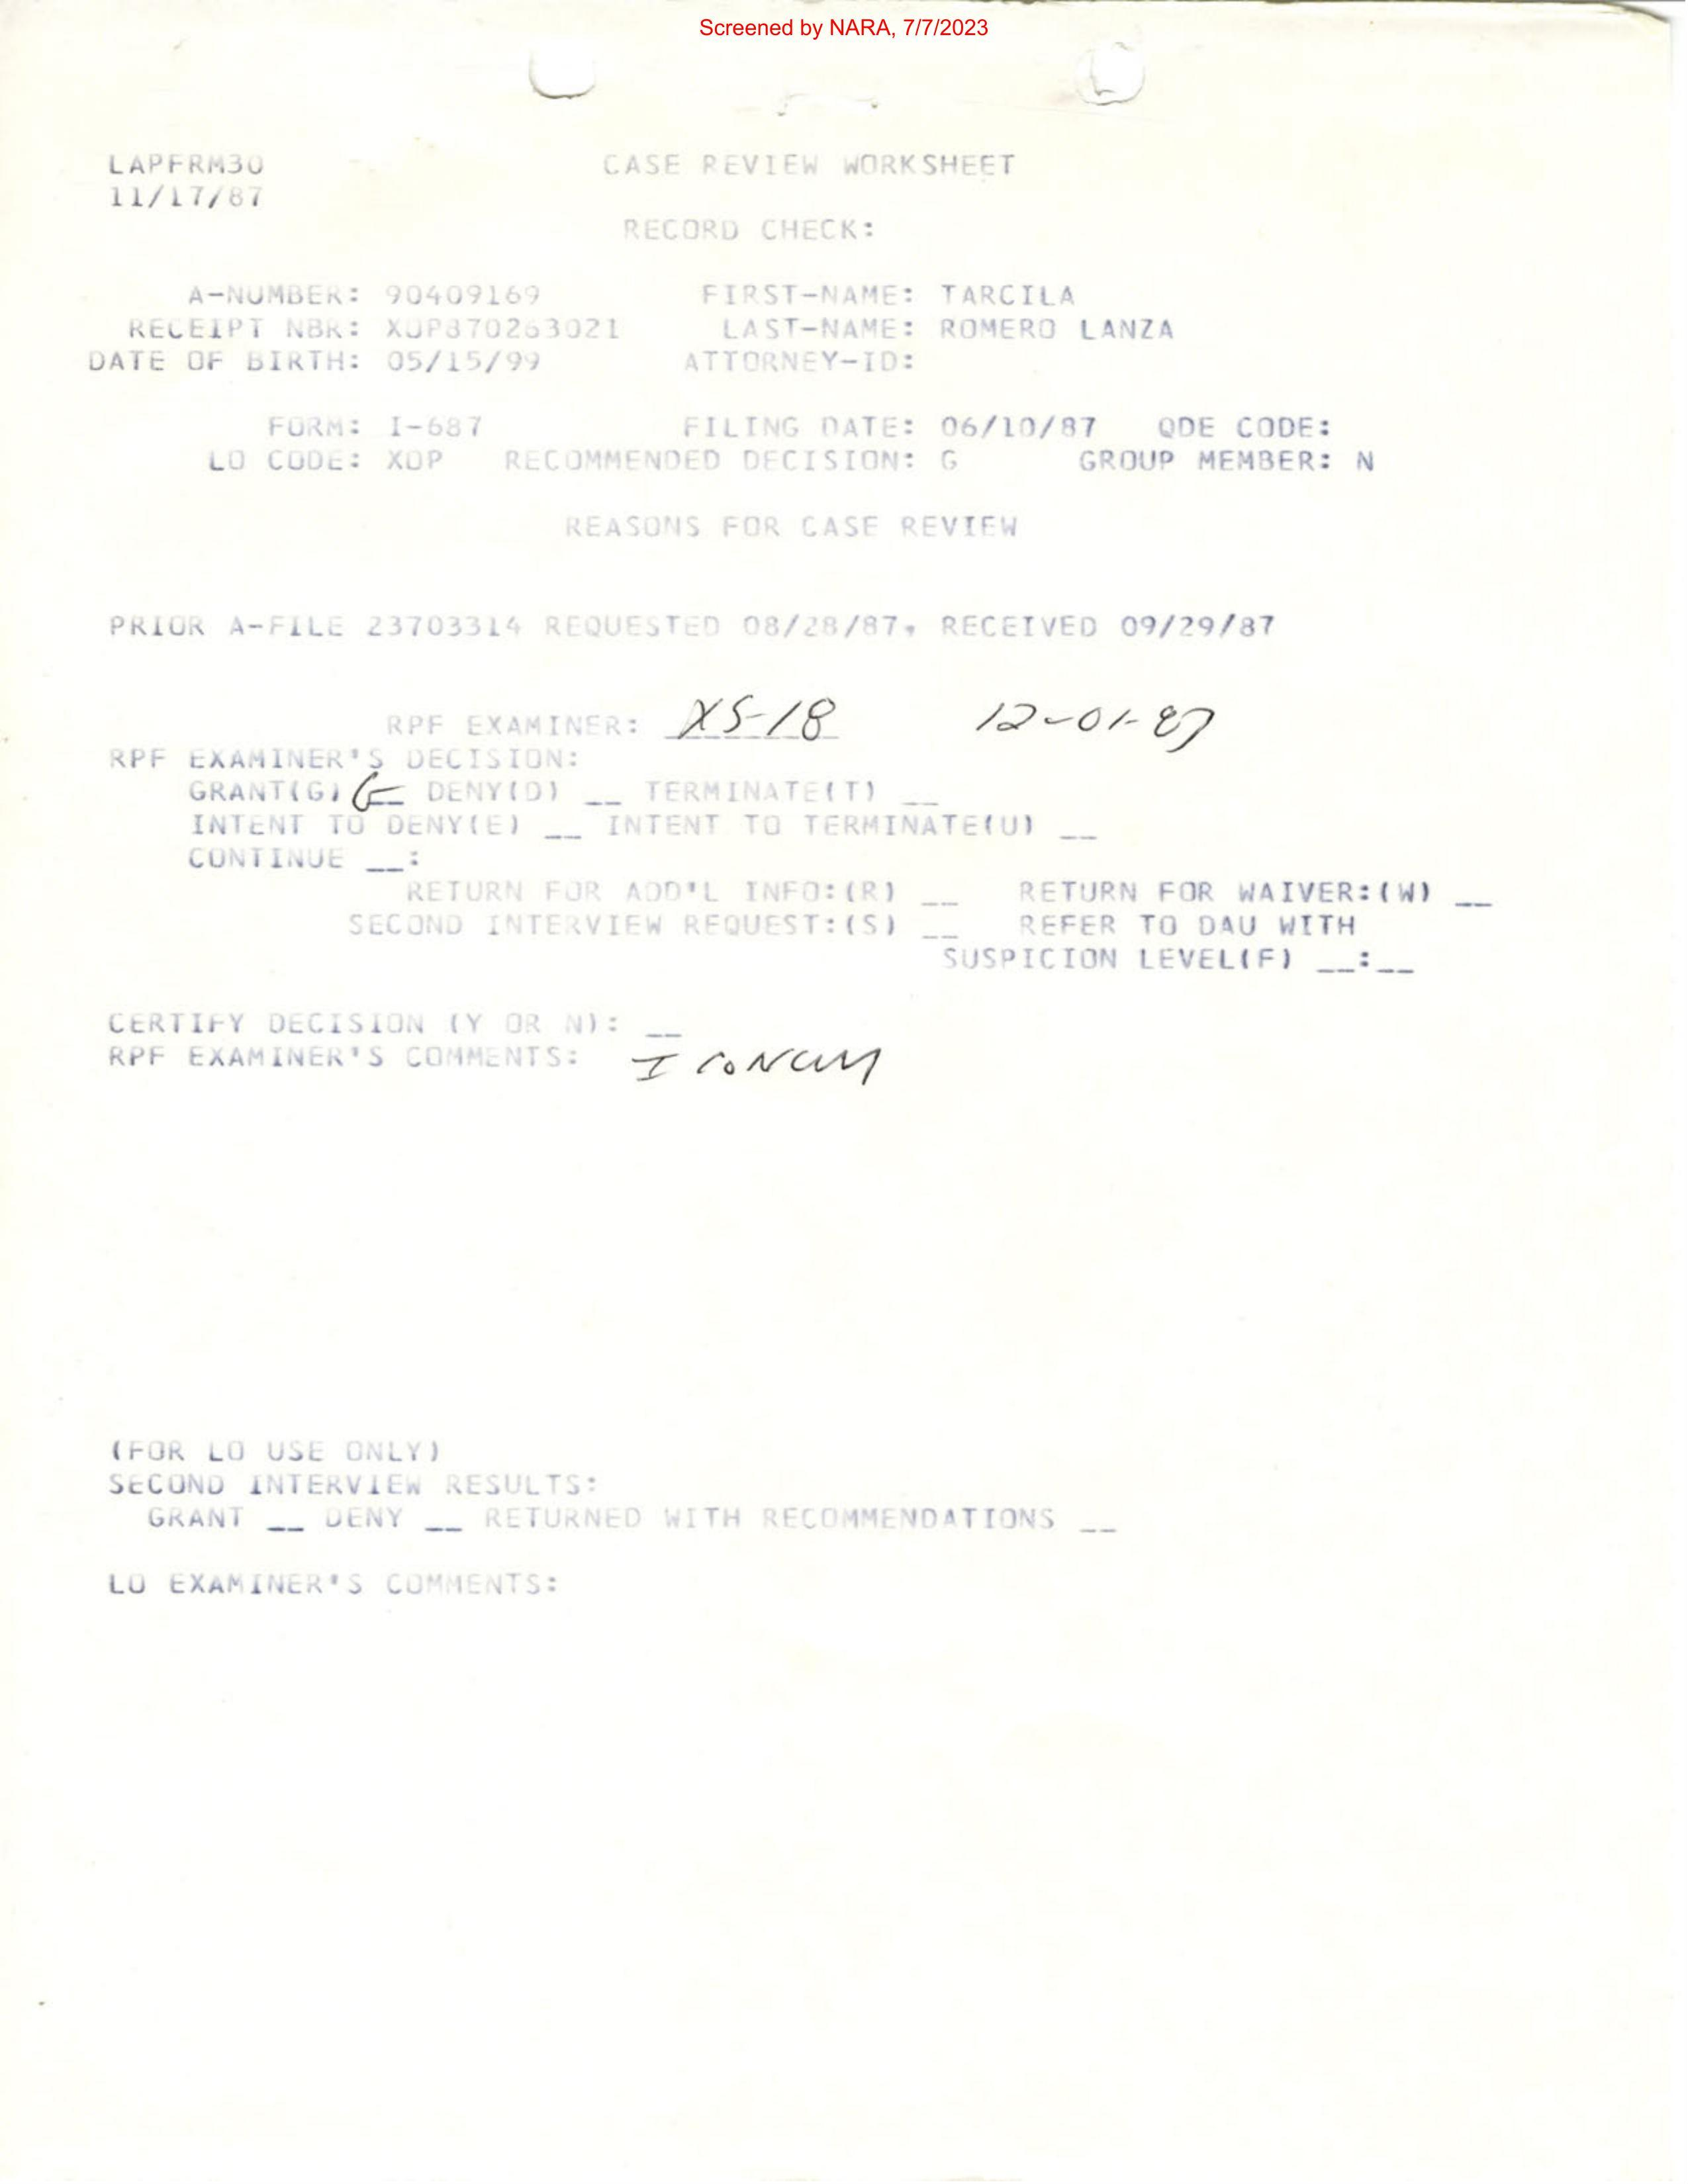 Screened by NARA, 7/7/2023
LAPFRM30 CASE REVIEW WORKSHEET
11/17/87
RECORD CHECK:
A-NUMBER: 90409169 FIRST-NAME: TARCILA
RECEIPT NBR: XOP870263021 LAST-NAME: ROMERO LANZA
DATE OF BIRTH: 05/15/99 ATTORNEY-ID:
FORM: I-687 FILING DATE: 06/10/87 QDE CODE:
LO CODE: XOP RECOMMENDED DECISION: G GROUP MEMBER: N
REASONS FOR CASE REVIEW
PRIOR A-FILE 23703314 REQUESTED 08/28/87, RECEIVED 09/29/87
RPF EXAMINER: XS-18 12-01-87
RPF EXAMINER'S DECISION:
GRANT(G) G DENY(D) __ TERMINATE(T) __
INTENT TO DENY(E) __ INTENT TO TERMINATE(U) __
CONTINUE __:
RETURN FOR ADD'L INFO:(R) __ RETURN FOR WAIVER:(W) __
SECOND INTERVIEW REQUEST:(S) __ REFER TO DAU WITH
SUSPICION LEVEL(F) __:__
CERTIFY DECISION (Y OR N): __
RPF EXAMINER'S COMMENTS: I CONCUR
(FOR LO USE ONLY)
SECOND INTERVIEW RESULTS:
GRANT __ DENY __ RETURNED WITH RECOMMENDATIONS __
LO EXAMINER'S COMMENTS: